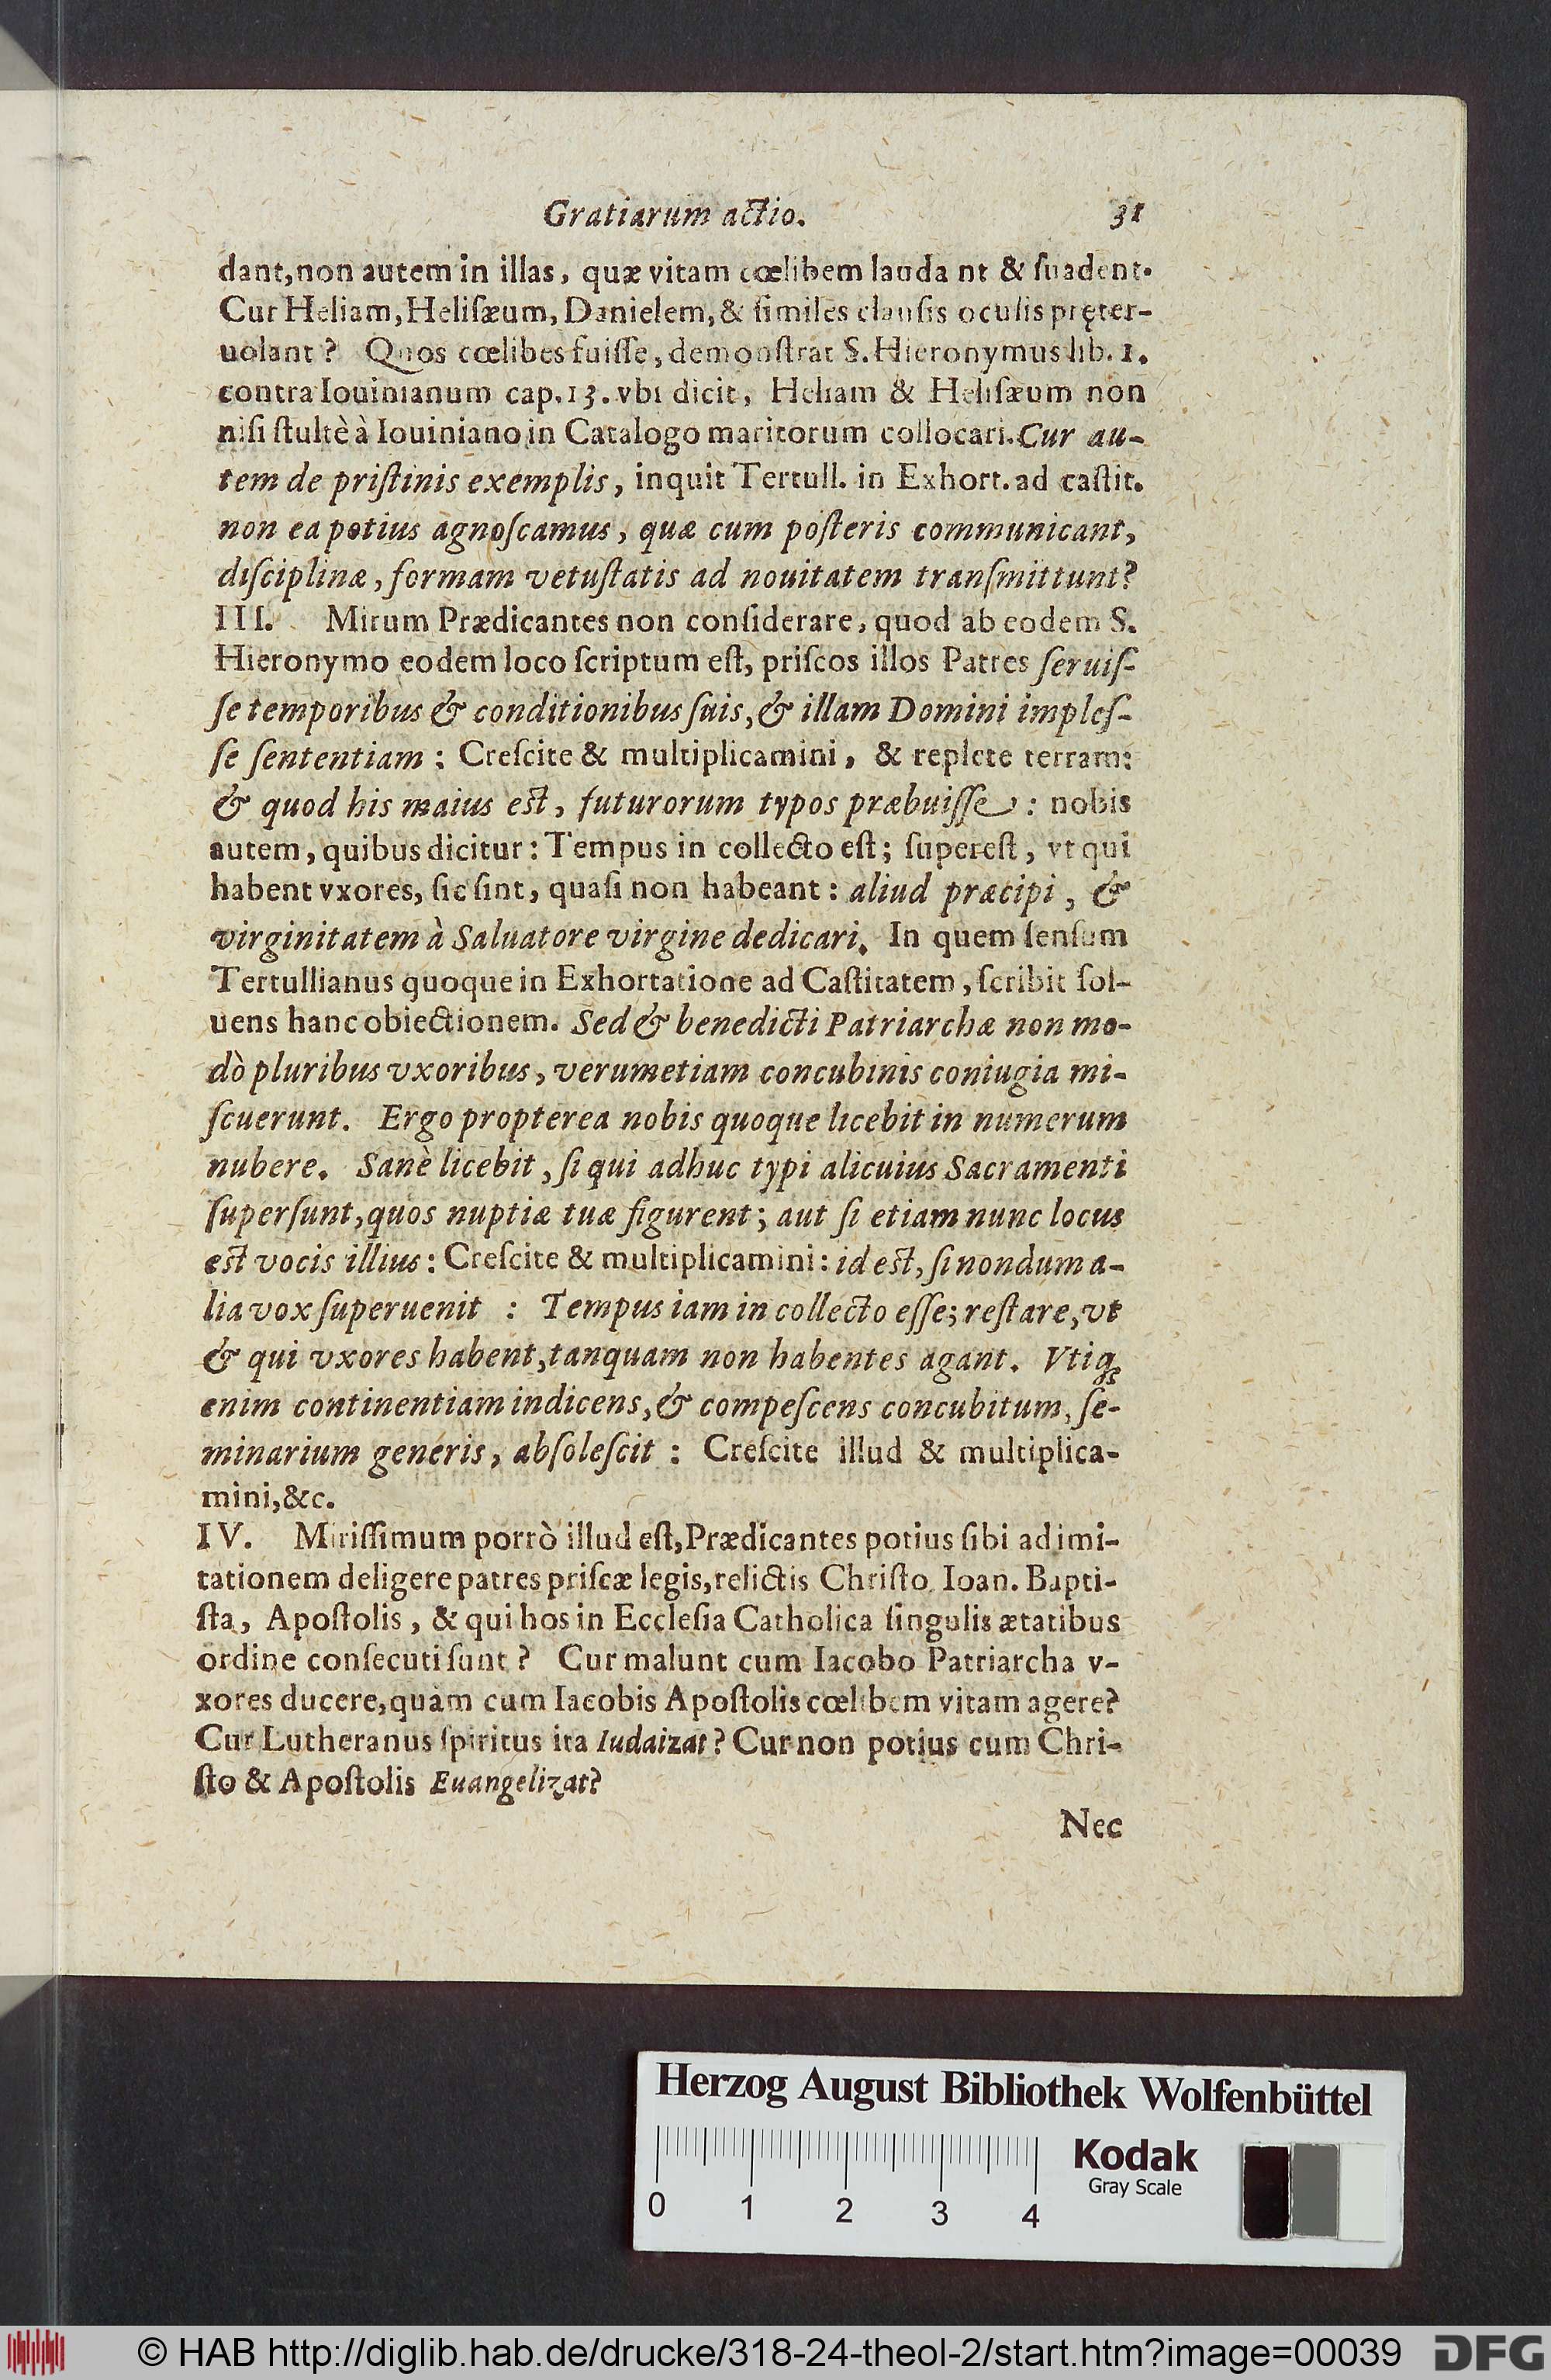 Gratiarum actio. 31
dant, non autem in illas, quæ vitam cœlibem lauda nt & ſuadent.
Cur Heliam, Heliſæum, Danielem, & ſimiles clauſis oculis pręter-
uolant? Quos cœlibes fuiſſe, demonſtrat S. Hieronymus lib. 1.
contra Iouinianum cap. 13. vbi dicit, Heliam & Heliſæum non
niſi ſtultè à Iouiniano in Catalogo maritorum collocari. Cur au-
tem de priſtinis exemplis, inquit Tertull. in Exhort. ad caſtit.
non ea potius agnoſcamus, quæ cum poſteris communicant,
diſciplinæ, formam vetuſtatis ad nouitatem tranſmittunt?
III. Mirum Prædicantes non conſiderare, quod ab eodem S.
Hieronymo eodem loco ſcriptum eſt, priſcos illos Patres ſeruiſ-
ſe temporibus & conditionibus ſuis, & illam Domini impleſ-
ſe ſententiam: Creſcite & multiplicamini, & replete terram:
& quod his maius eſt, futurorum typos præbuiſſe: nobis
autem, quibus dicitur: Tempus in collecto eſt; ſupereſt, vt qui
habent vxores, ſic ſint, quaſi non habeant: aliud præcipi, &
virginitatem à Saluatore virgine dedicari. In quem ſenſum
Tertullianus quoque in Exhortatione ad Caſtitatem, ſcribit ſol-
uens hanc obiectionem. Sed & benedicti Patriarchæ non mo-
dò pluribus vxoribus, verumetiam concubinis coniugia mi-
ſcuerunt. Ergo propterea nobis quoque licebit in numerum
nubere. Sanè licebit, ſi qui adhuc typi alicuius Sacramenti
ſuperſunt, quos nuptiæ tuæ figurent; aut ſi etiam nunc locus
eſt vocis illius: Creſcite & multiplicamini: id eſt, ſi nondum a-
lia vox ſuperuenit : Tempus iam in collecto eſſe; reſtare, vt
& qui vxores habent, tanquam non habentes agant. Vtiq;
enim continentiam indicens, & compeſcens concubitum, ſe-
minarium generis, abſoleſcit: Creſcite illud & multiplica-
mini, &c.
IV. Miriſſimum porrò illud eſt, Prædicantes potius ſibi ad imi-
tationem deligere patres priſcæ legis, relictis Chriſto, Ioan. Bapti-
ſta, Apoſtolis, & qui hos in Eccleſia Catholica ſingulis ætatibus
ordine conſecuti ſunt? Cur malunt cum Iacobo Patriarcha v-
xores ducere, quàm cum Iacobis Apoſtolis cœlibem vitam agere?
Cur Lutheranus ſpiritus ita Iudaizat? Cur non potius cum Chri-
ſto & Apoſtolis Euangelizat?
Nec
Herzog August Bibliothek Wolfenbüttel
Kodak
Gray Scale
0 1 2 3 4
© HAB http://diglib.hab.de/drucke/318-24-theol-2/start.htm?image=00039 DFG